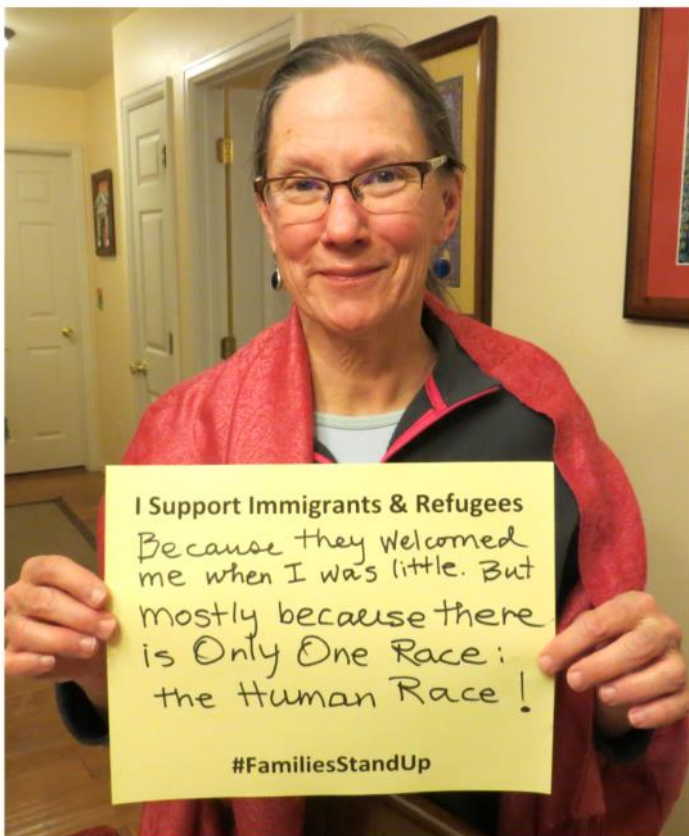 I Support Immigrants & Refugees
Because they welcomed
me when I was little. But
mostly because there
is Only One Race:
the Human Race!
#FamiliesStandUp